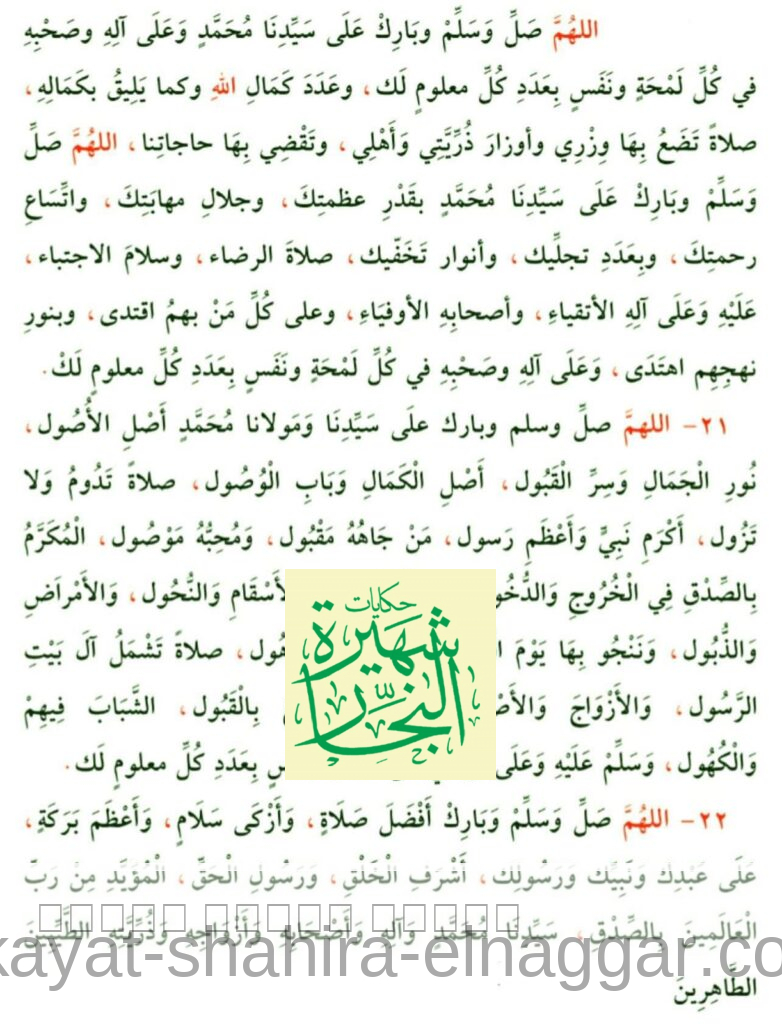 اللهُمَّ صَلِّ وَسَلِّمْ وبَارِكْ عَلَى سَيِّدِنَا مُحَمَّدٍ وَعَلَى آلِهِ وصَحْبِهِ
في كُلِّ لَمْحَةٍ ونَفَسٍ بِعَدَدِ كُلِّ معلومٍ لَك، وعَدَدَ كَمَالِ اللهِ وكما يَلِيقُ بكَمَالِهِ،
صلاةً تَضَعُ بِهَا وِزْرِي وأوزارَ ذُرِّيَّتِي وَأَهْلِي، وتَقْضِي بِهَا حاجاتِنا، اللهُمَّ صَلِّ
وَسَلِّمْ وبَارِكْ عَلَى سَيِّدِنَا مُحَمَّدٍ بقَدْرِ عظمتِكَ، وجلالِ مهابَتِكَ، واتِّسَاعِ
رحمتِكَ، وبِعَدَدِ تجلِّيك، وأنوار تَخَفّيك، صلاةَ الرضاء، وسلامَ الاجتباء،
عَلَيْهِ وَعَلَى آلِهِ الأتقياءِ، وأصحابِهِ الأوفيَاءِ، وعلى كُلِّ مَنْ بهمُ اقتدى، وبنورِ
نهجِهِم اهتَدَى، وَعَلَى آلِهِ وصَحْبِهِ في كُلِّ لَمْحَةٍ ونَفَسٍ بِعَدَدِ كُلِّ معلومٍ لَكْ.
٢١- اللهمَّ صلِّ وسلم وبارك علَى سَيِّدِنَا وَمَولانا مُحَمَّدٍ أَصْلِ الأُصُول،
نُورِ الْجَمَالِ وَسِرِّ الْقَبُول، أَصْلِ الْكَمَالِ وَبَابِ الْوُصُول، صلاةً تَدُومُ وَلا
تَزُول، أَكْرَمِ نَبِيٍّ وَأَعْظَمِ رَسول، مَنْ جَاهُهُ مَقْبُول، وَمُحِبُّهُ مَوْصُول، الْمُكَرَّمُ
بِالصِّدْقِ فِي الْخُرُوجِ وَالدُّخُو الأَسْقَامِ وَالنُّحُول، وَالأَمْرَاضِ
وَالذُّبُول، وَنَنْجُو بِهَا يَوْمَ صلاةً تَشْمَلُ آلَ بَيْتِ
الرَّسُول، وَالأَزْوَاجَ بِالْقَبُول، الشَّبَابَ فِيهِمْ
وَالْكُهُول، وَسَلِّمْ عَلَيْهِ وَعَلَى بِعَدَدِ كُلِّ معلومٍ لَك.
حكايات
شهيرة
النجار
٢٢- اللهُمَّ صَلِّ وَسَلِّمْ وَبَارِكْ أَفْضَلَ صَلَاةٍ، وَأَزْكَى سَلَامٍ، وَأَعْظَمَ بَرَكَةٍ،
عَلَى عَبْدِكَ وَنَبِيِّكَ وَرَسُولِك، أَشْرَفِ الْخَلْقِ، وَرَسُولِ الْحَقِّ، الْمُؤَيَّدِ مِنْ رَبِّ
الْعَالَمِينَ بِالصِّدْقِ، سَيِّدِنَا مُحَمَّدٍ وَآلِهِ وَأَصْحَابِهِ وَأَزْوَاجِهِ وَذُرِّيَّتِهِ الطَّيِّبِينَ
kayat-shahira-elnaggar.co
الطَّاهِرِينَ